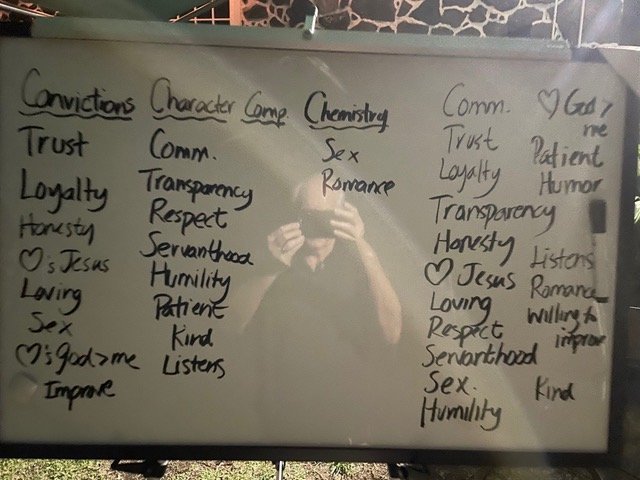 Convictions
Trust
Loyalty
Honesty
♡'s Jesus
Loving
Sex
♡'s god>me
Improve
Character Comp.
Comm.
Transparency
Respect
Servanthood
Humility
Patient
Kind
Listens
Chemistry
Sex
Romance
Comm.
Trust
Loyalty
Transparency
Honesty
♡ Jesus
Loving
Respect
Servanthood
Sex.
Humility
♡ God>
me
Patient
Humor
Listens
Romance
Willing to
improve
Kind